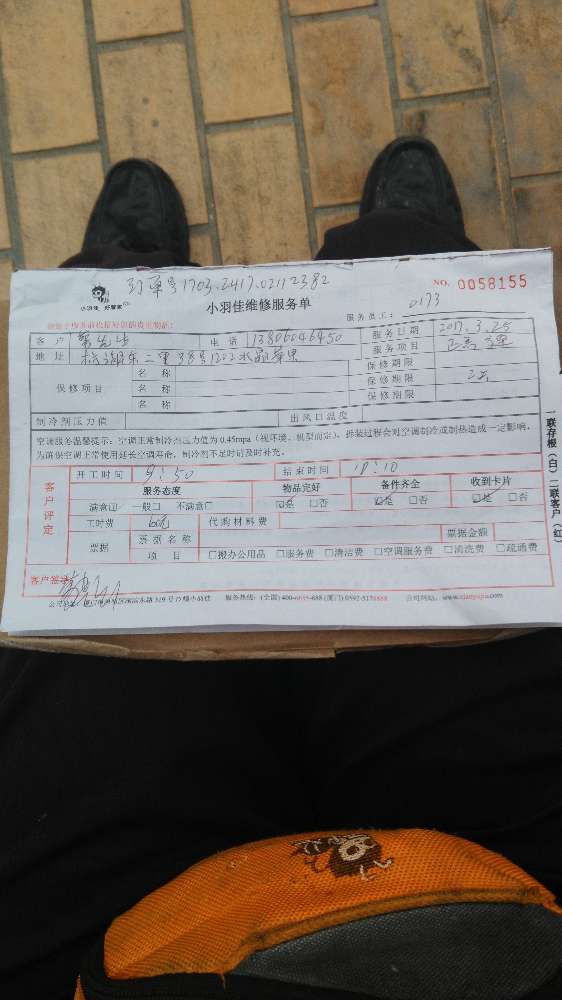 订单号1703.2417.02112382
小羽佳 好管家
小羽佳维修服务单
NO. 0058155
服务员工: 0173
客 户 电 话 13806046450 服务日期 2017.3.25
地 址 38号1202水晶苹果 服务项目
保修项目 名 称 保修期限
名 称 保修期限
名 称 保修期限
制冷剂压力值 出风口温度
空调服务温馨提示:空调正常制冷剂压力值为0.45mpa(视环境、机型而定),拆装过程会对空调制冷或制热造成一定影响,
为确保空调正常使用延长空调寿命,制冷剂不足时请及时补充。
客户评定
开工时间 9:50 结束时间 10:10
服务态度 物品完好 备件齐全 收到卡片
满意 一般□ 不满意□ 是 □否 是 □否 是 □否
工时费 代购材料费
票据 票据名称 票据金额
项 目 □搬办公用品 □服务费 □清洁费 □空调服务费 □清洗费 □疏通费
客户签名
服务热线:(全国) (厦门) 公司网站:
一联存根(白)二联客户(红)